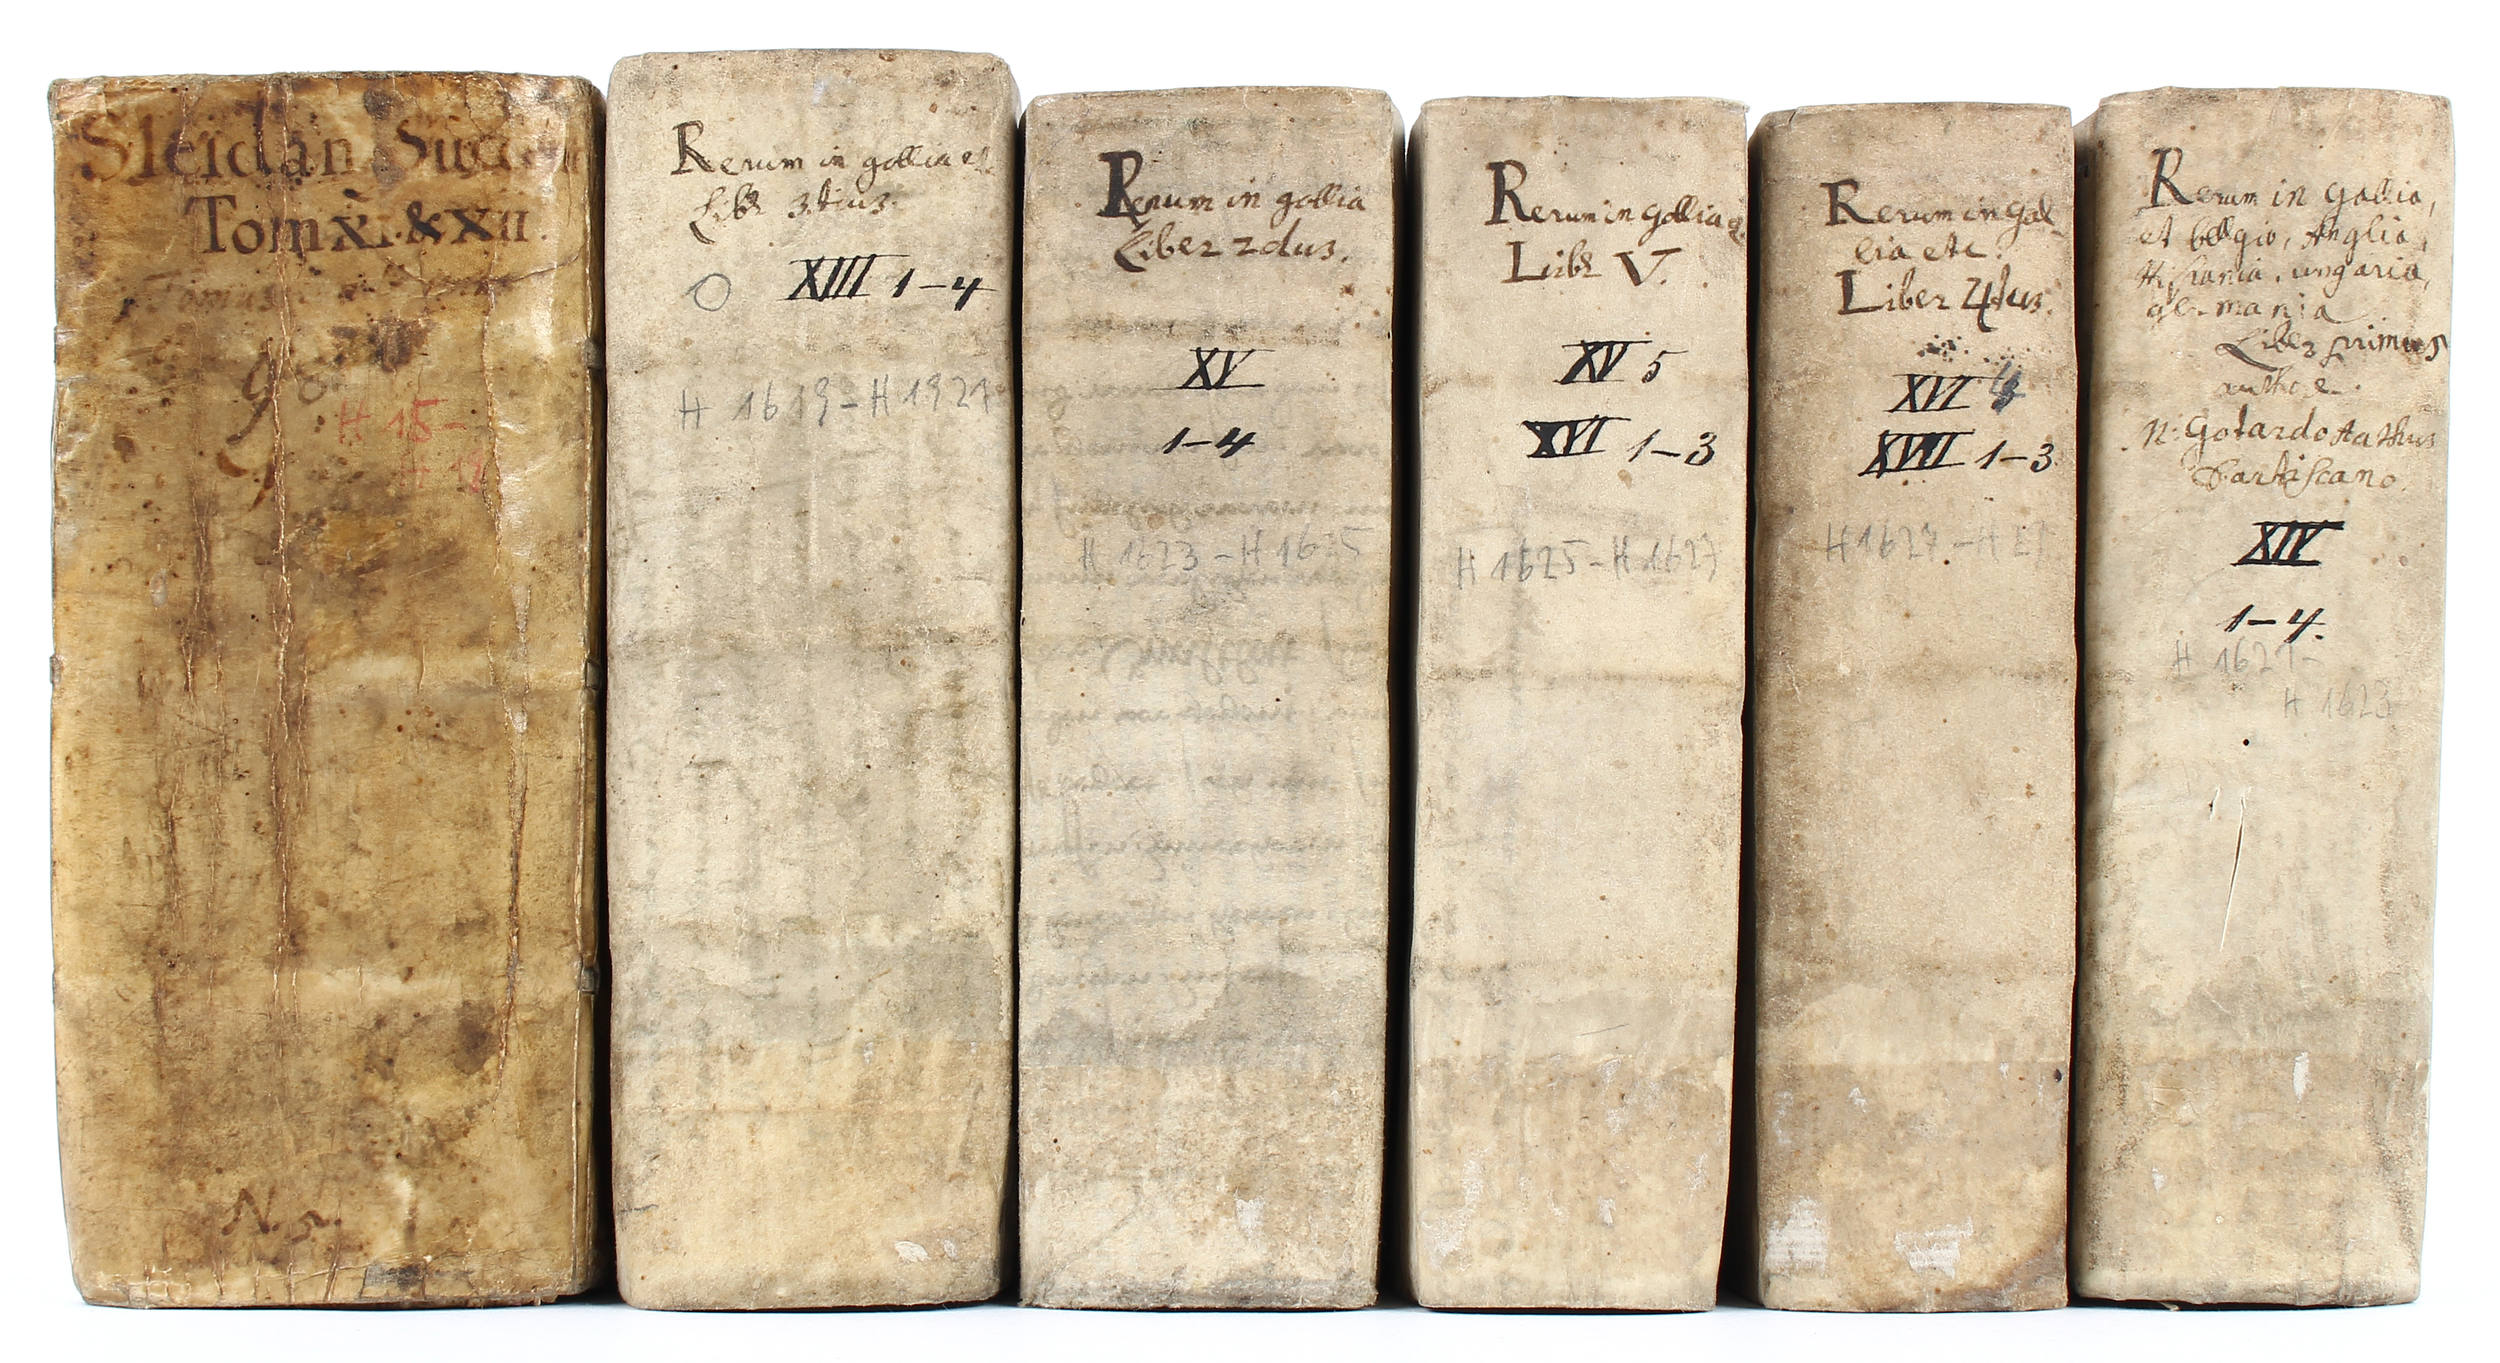 Sleidan
Tom XI. & XII.
Tomus
90
H 15-
N.
Rerum in gallia et
Libr 3tius.
O XIII 1-4
H 1619-H 1921
Rerum in gallia
Liber 2dus.
XV
1-4
H 1623-H 1625
Rerum in gallia
Libr V.
XV 5
XVI 1-3
H 1625-H 1627
Rerum in gal
lia etc.
Liber 4tus.
XVI
XVII 1-3
H 1627-H
Rerum in gallia,
et belgio, Anglia,
Hispania, ungaria,
germania
Liber primus
authore.
M. Gotardo Arthus
Dantiscano.
XIV
1-4.
H 1621-
H 1623